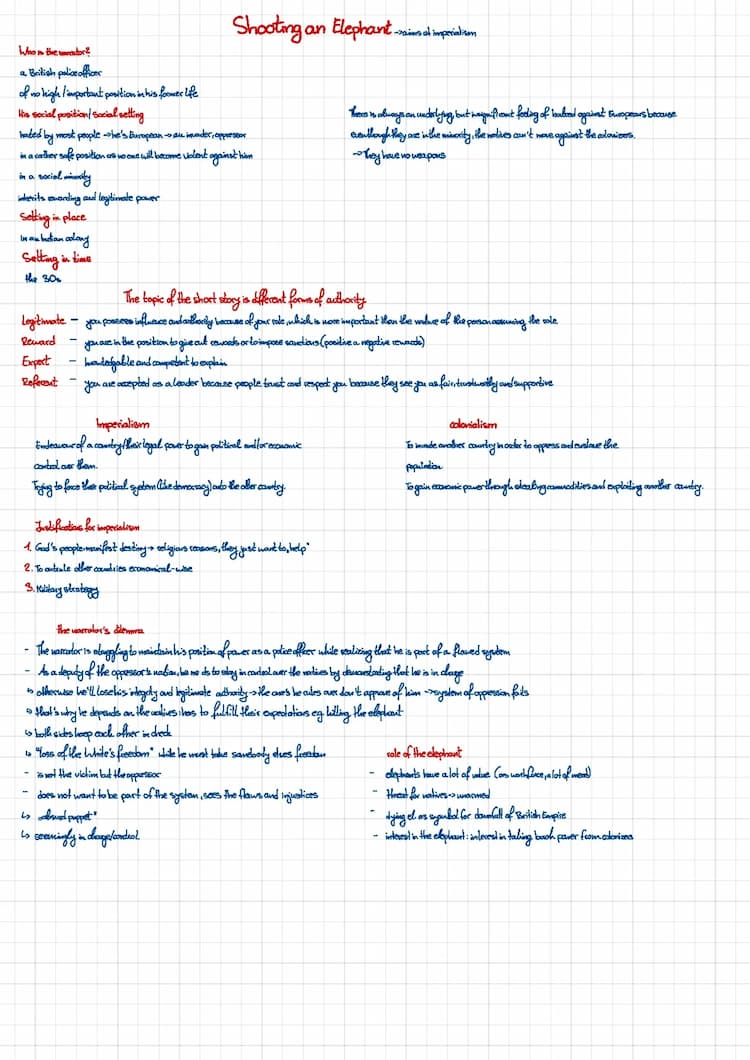 Shooting an Elephant -> aims at imperialism
Who is the narrator?
a British police officer
of no high / important position in his former life
His social position / Social setting
hated by most people -> he's European -> an invader, oppressor
in a rather safe position as no one will become violent against him
in a social minority
inherits rewarding and legitimate power
There is always an underlying, but insignificant feeling of hatred against Europeans because
eventhough they are in the minority, the natives can't move against the colonizers.
-> They have no weapons
Setting in place
In an Indian colony
Setting in time
the 30s
The topic of the short story is different forms of authority
Legitimate - you possess influence and authority because of your role, which is more important than the value of the person assuming the role
Reward - you are in the position to give out rewards or to impose sanctions (positive a negative rewards)
Expert - knowledgable and competent to explain
Referent - you are accepted as a leader because people trust and respect you because they see you as fair, trustworthy and supportive
Imperialism
Endeavour of a country/their legal power to gain political and/or economic
control over them.
Trying to force their political system (like democracy) onto the other country.
colonialism
To invade another country in order to oppress and enslave the
population.
To gain economic power through stealing commodities and exploiting another country.
Justification for imperialism
1. God's people-manifest destiny -> religious reasons, they just want to "help"
2. To outrule other countries economical-wise
3. Military strategy
the narrator's dilemma
- The narrator is struggling to maintain his position of power as a police officer while realizing that he is part of a flawed system
- As a deputy of the oppressor's nation, he needs to stay in control over the natives by demonstrating that he is in charge
↳ otherwise he'll lose his integrity and legitimate authority -> the one's he rules over don't approve of him -> system of oppression fails
↳ that's why he depends on the natives: has to fulfill their expectations eg killing the elephant
↳ both sides keep each other in check
↳ "loss of the White's freedom" while he must take somebody elses freedom
- is not the victim but the oppressor
- does not want to be part of the system, sees the flaws and injustices
↳ "absurd puppet"
↳ seemingly in charge/control
role of the elephant
- elephants have a lot of value (as workforce, a lot of meat)
- threat for natives -> unarmed
- dying el. as symbol for downfall of British Empire
- interest in the elephant: interest in taking back power from colonizers